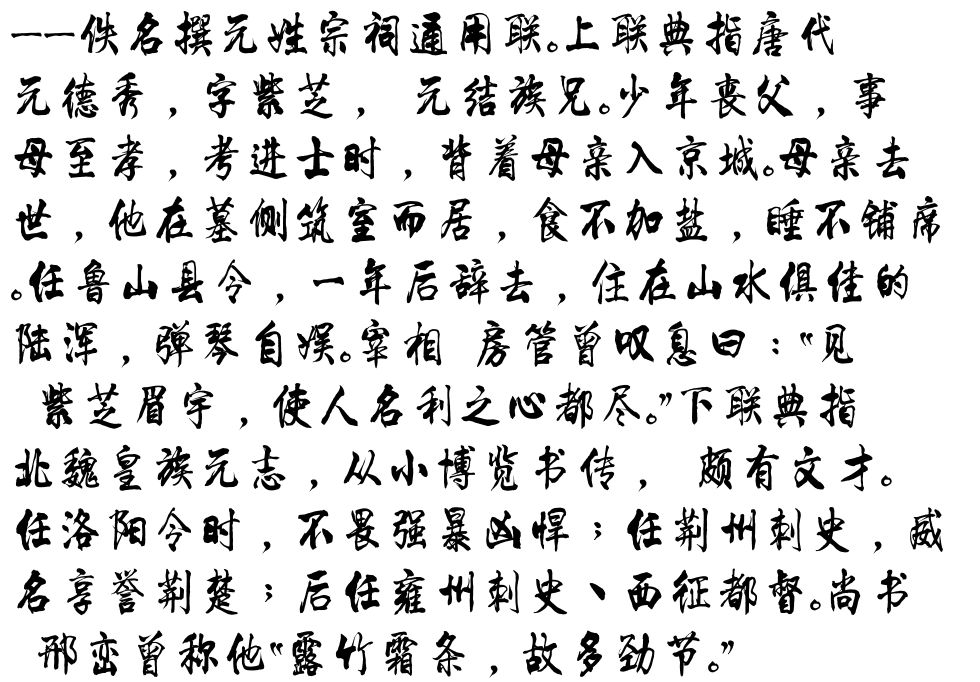 ——佚名撰元姓宗祠通用联。上联典指唐代
元德秀，字紫芝， 元结族兄。少年丧父，事
母至孝，考进士时，背着母亲入京城。母亲去
世，他在墓侧筑室而居，食不加盐，睡不铺席
。任鲁山县令，一年后辞去，住在山水俱佳的
陆浑，弹琴自娱。宰相 房管曾叹息曰：“见
紫芝眉宇，使人名利之心都尽。”下联典指
北魏皇族元志，从小博览书传， 颇有文才。
任洛阳令时，不畏强暴凶悍；任荆州刺史，威
名享誉荆楚；后任雍州刺史、西征都督。尚书
邢峦曾称他“露竹霜条，故多劲节。”